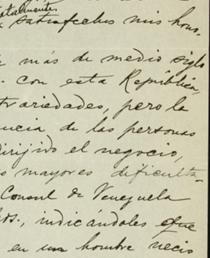 totalmente
satisfechos mis hon.
más de medio siglo
con esta República,
variedades, pero le
ncia de las personas
dirijido el negocio,
s mayores dificulta-
Consul de Venezuela
os., indicándoles que
en un hombre necio